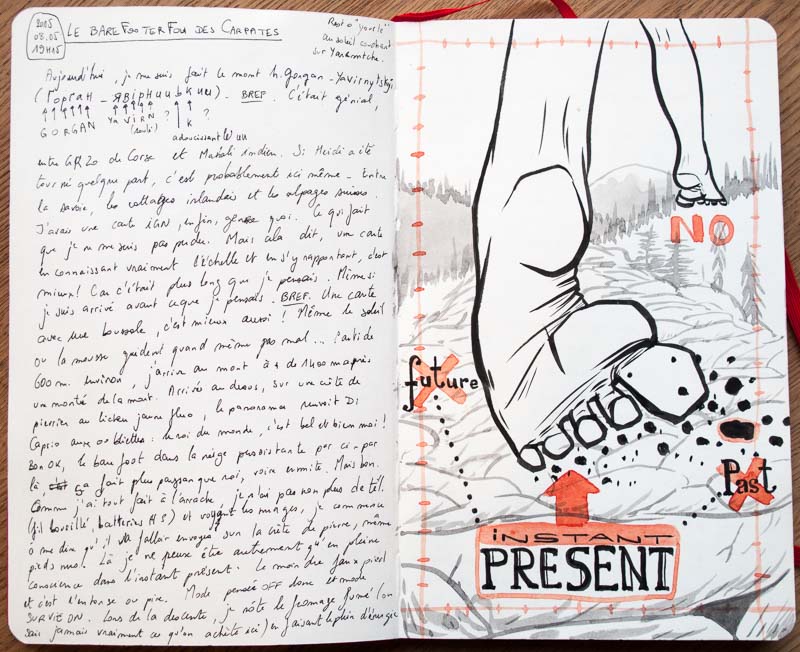 2015
08.05
19H15
LE BAREFOOTERFOU DES CARPATES
Resto "yourte"
au soleil couchant
sur Yaremtche.
Aujourd'hui, je me suis fait le mont h. Gorgan - Yavirnytskyi
(ГОРГАН - ЯВІРНИЦЬКИЙ). BREF. C'était génial,
GORGAN Ya ViRN ? ?
(roulé) K
adoucissant
entre GR20 de Corse et Manali indien. Si Heidi a été
tourné quelque part, c'est probablement ici même. Entre
la savoie, les cottages irlandais et les alpages suisses.
J'avais une carte IGN, enfin, genre quoi. Ce qui fait
que je ne me suis pas perdu. Mais cela dit, une carte
en connaissant vraiment l'échelle et en s'y rapportant, c'est
mieux! Car c'était plus long que je pensais. Même si
je suis arrivé avant ce que je pensais. BREF. Une carte
avec une boussole, c'est mieux aussi! Même le soleil
ou la mousse guident quand même pas mal... Parti de
600m. environ, j'arrive au mont à + de 1400m après
une montée de la mort. Arrivée au dessus, sur une crête de
pierrier au lichen jaune fluo, le panorama renvoit Di
Caprio aux oubliettes: le roi du monde, c'est bel et bien moi!
Bon OK, le barefoot dans la neige persistante par ci-par
là ça fait plus paysan que roi, voire ermite. Mais bon.
Comme j'ai tout fait à l'arrache, je n'ai pas non plus de tél.
(fil bousillé, batteries HS) et voyant les nuages, je commence
à me dire qu'il va falloir envoyer sur la crête de pierre, même
pieds nus. Là je ne peux être autrement qu'en pleine
conscience dans l'instant présent: le moindre faux pied
et c'est l'entorse ou pire. Mode pensée OFF donc et mode
SURVIE ON. Lors de la descente, je rôte le fromage fumé (on
sais jamais vraiment ce qu'on achète ici) en faisant le plein d'énergie
NO
future
Past
INSTANT
PRESENT